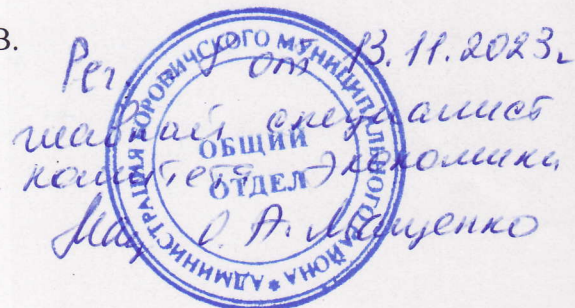 В.
Рег. от 13.11.2023г
главный специалист
комитета экономики
О. А. Мащенко
АДМИНИСТРАЦИЯ БОРОВИЧСКОГО МУНИЦИПАЛЬНОГО РАЙОНА *
ОБЩИЙ
ОТДЕЛ